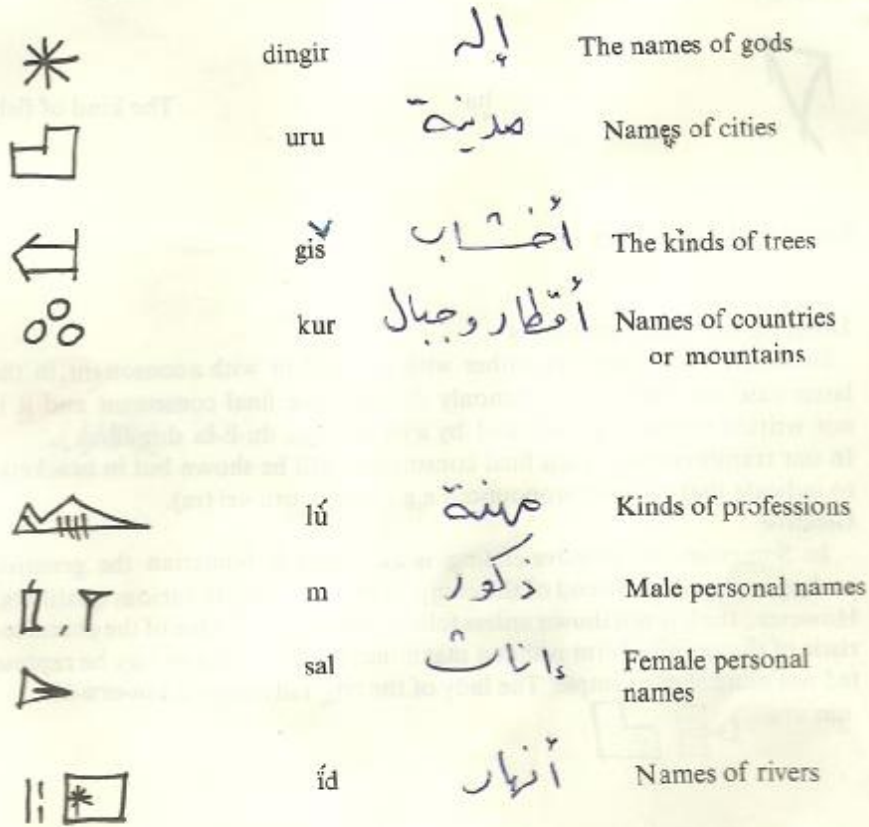 dingir إله The names of gods
uru مدينة Names of cities
giš أخشاب The kinds of trees
kur أقطار وجبال Names of countries
or mountains
lú مهنة Kinds of professions
m ذكور Male personal names
sal إناث Female personal
names
íd أنهار Names of rivers